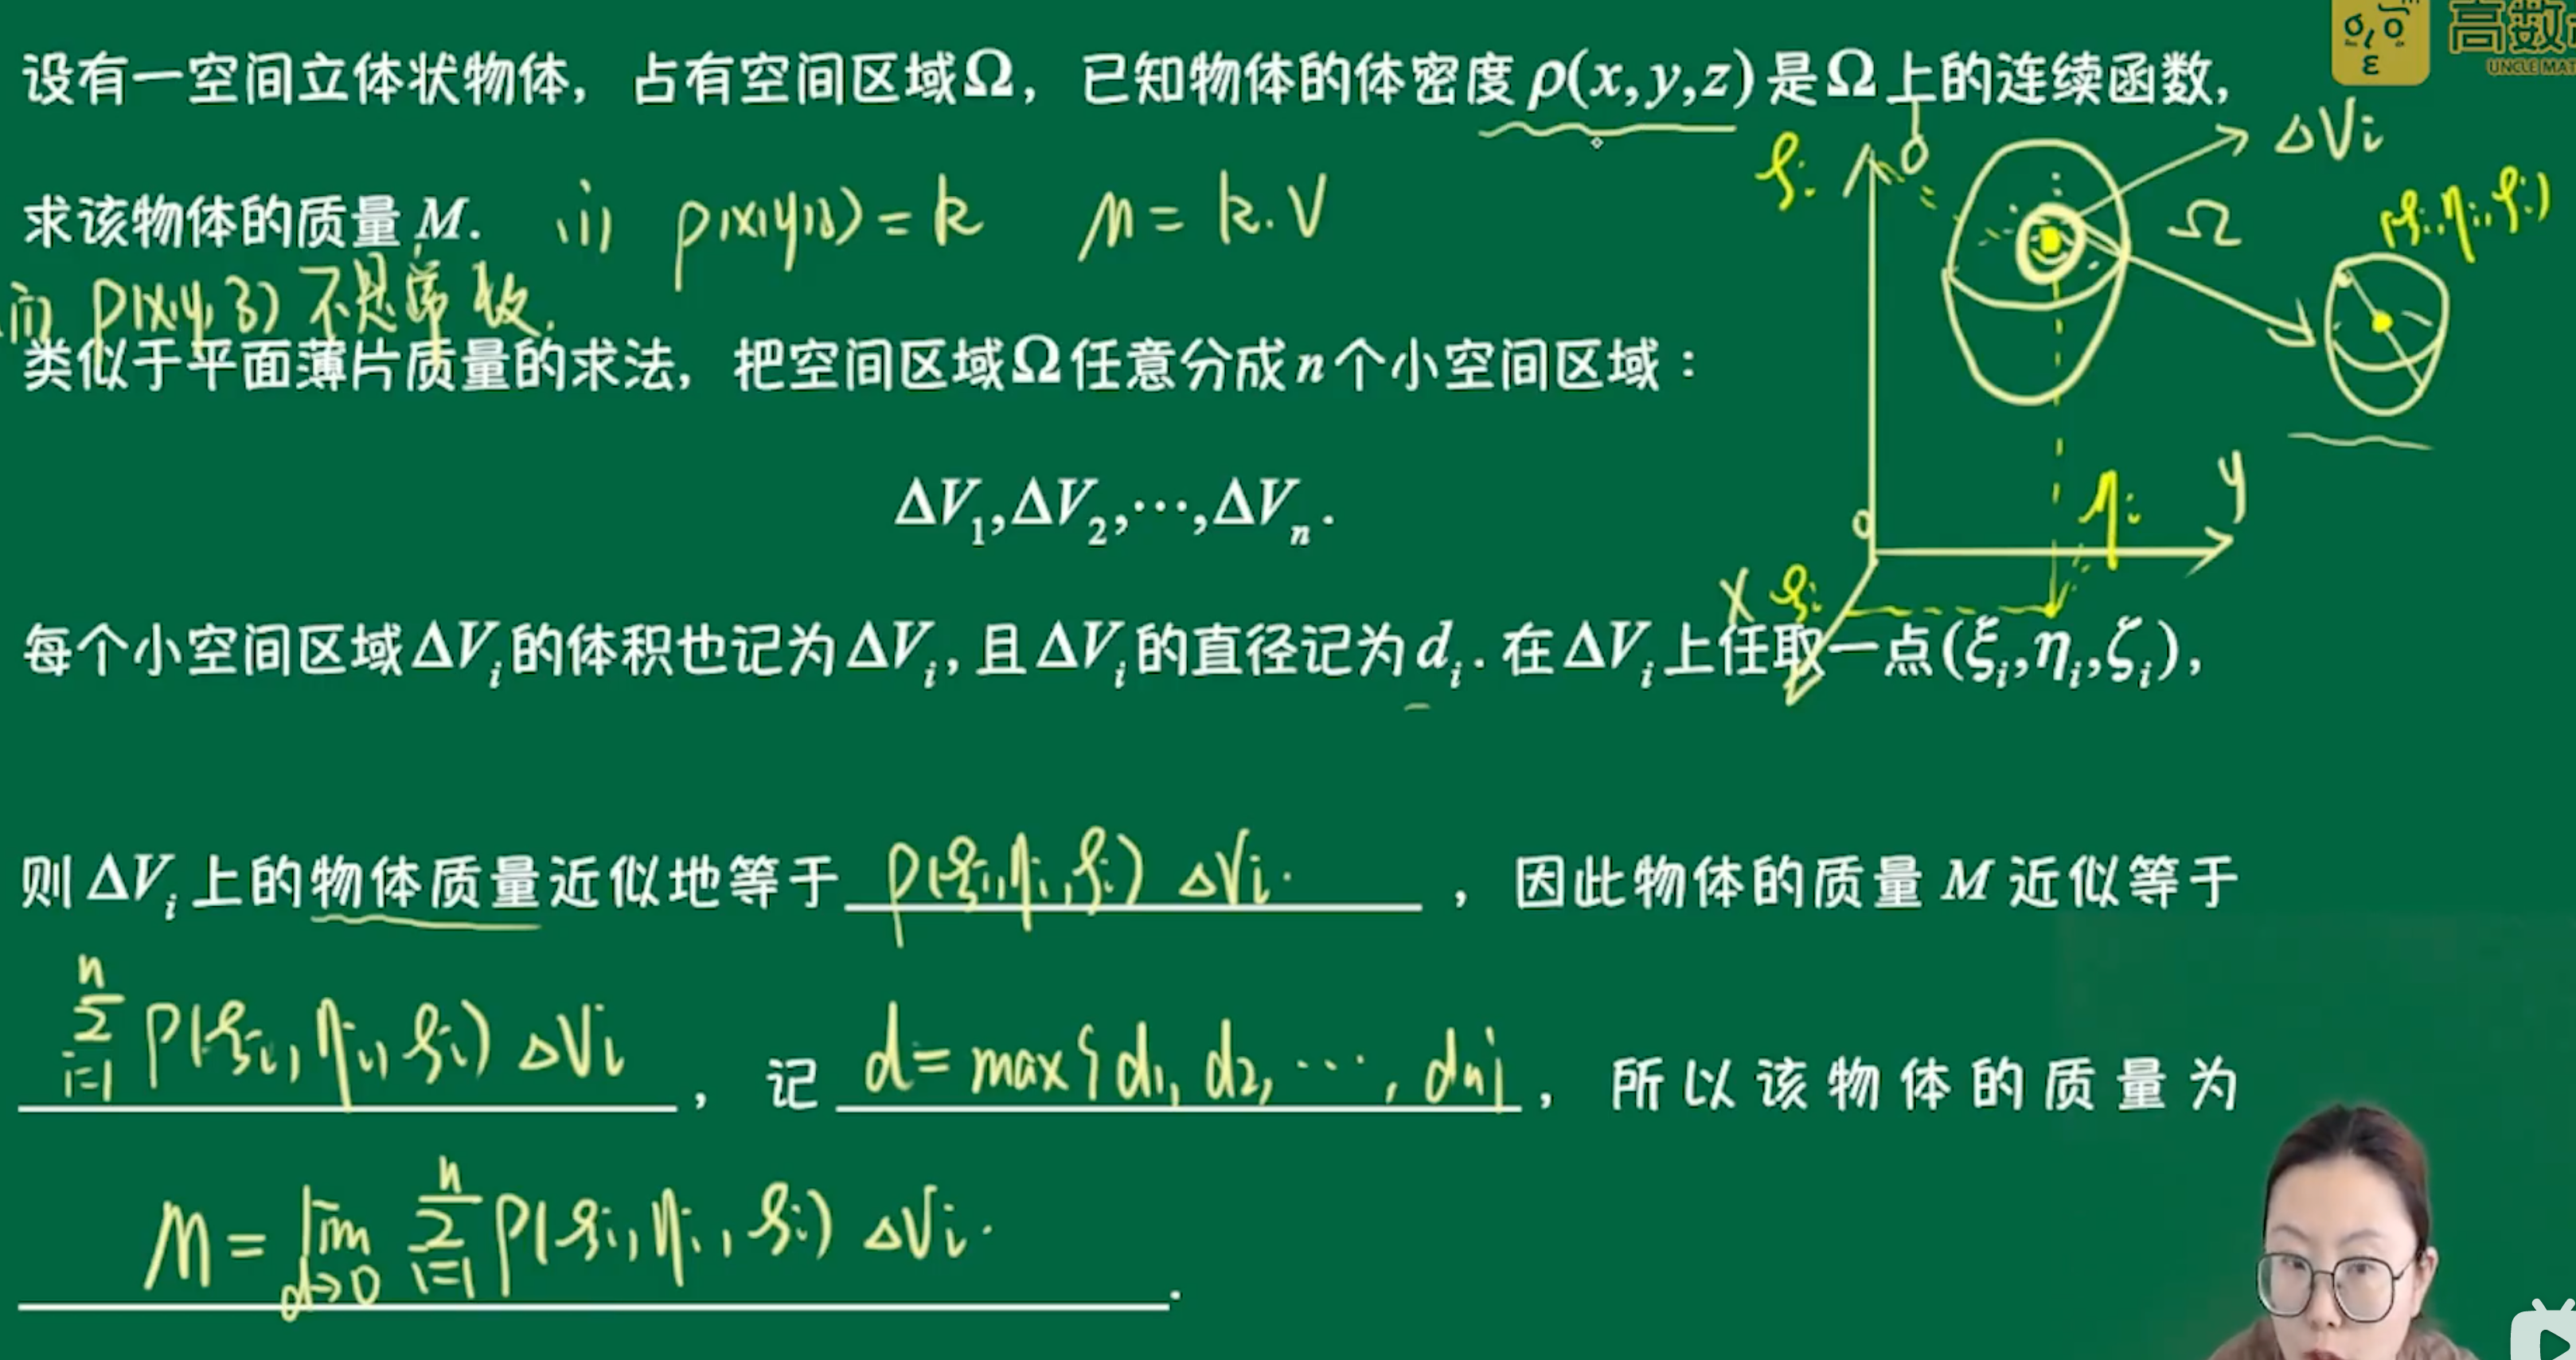 高数
UNCLE MAT
设有一空间立体状物体，占有空间区域Ω，已知物体的体密度ρ(x,y,z)是Ω上的连续函数，
求该物体的质量M. (i) ρ(x,y,z)=k M=k.V
(ii) ρ(x,y,z) 不是常数.
类似于平面薄片质量的求法，把空间区域Ω任意分成n个小空间区域：
ΔV₁,ΔV₂,⋯,ΔVₙ.
每个小空间区域ΔVᵢ的体积也记为ΔVᵢ,且ΔVᵢ的直径记为dᵢ.在ΔVᵢ上任取一点(ξᵢ,ηᵢ,ζᵢ),
则ΔVᵢ上的物体质量近似地等于 ρ(ξᵢ,ηᵢ,ζᵢ) ΔVᵢ. ，因此物体的质量M近似等于
n∑i=1 ρ(ξᵢ,ηᵢ,ζᵢ) ΔVᵢ ，记 d=max{d₁,d₂,⋯,dₙ} ，所以该物体的质量为
M=lim d→0 n∑i=1 ρ(ξᵢ,ηᵢ,ζᵢ) ΔVᵢ. .
ΔVᵢ
Ω
(ξᵢ,ηᵢ,ζᵢ)
ζᵢ
o
y
ηᵢ
x ξᵢ